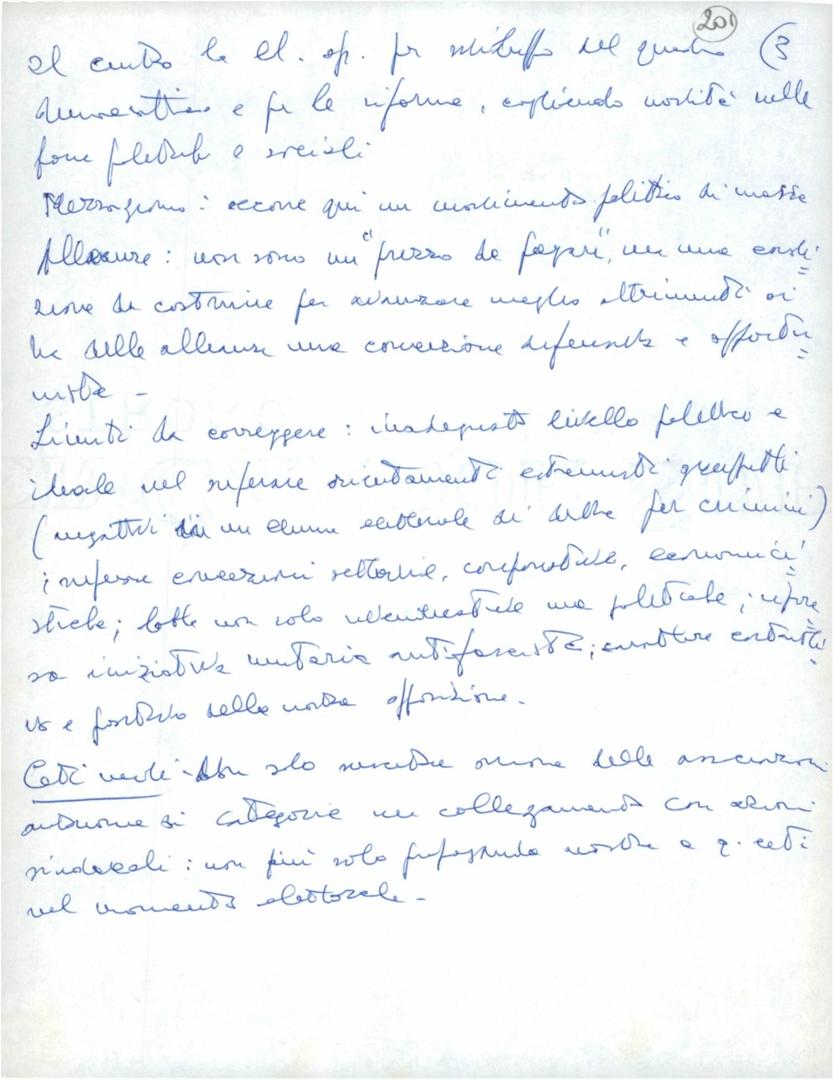 201
al centro la cl. op. per sviluppo del quadro (3
democratico e per le riforme, cogliendo novità nelle
forze politiche e sociali
Mezzogiorno: occorre qui un movimento politico di massa
Alleanze: non sono un "prezzo da pagare", ma una condi=
zione da costruire per avanzare meglio altrimenti si
ha delle alleanze una concezione difensiva e opportu=
nista -
Limiti da correggere: inadeguato livello politico e
ideale nel superare orientamenti estremisti gruppetti
(negativi in un clima elettorale di per crimini)
; superare concezioni settoriali, corporative, economici=
stiche; lotte non solo rivendicative ma politiche; ripre=
sa iniziativa unitaria antifascista; carattere costrutti=
vo e positivo della nostra opposizione.
Ceti medi - Non solo suscitare unione delle associazioni
autonome di categoria ma collegamento con azioni
sindacali: non più solo propaganda nostra a q. ceti
nel momento elettorale -